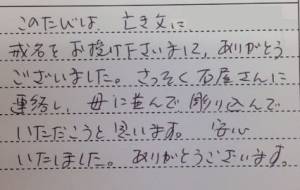 このたびは 亡き父に
戒名をお授け下さいまして、ありがとう
ございました。さっそく石屋さんに
連絡し、母に並んで彫り込んで
いただこうと思います。 安心
いたしました。ありがとうございます。